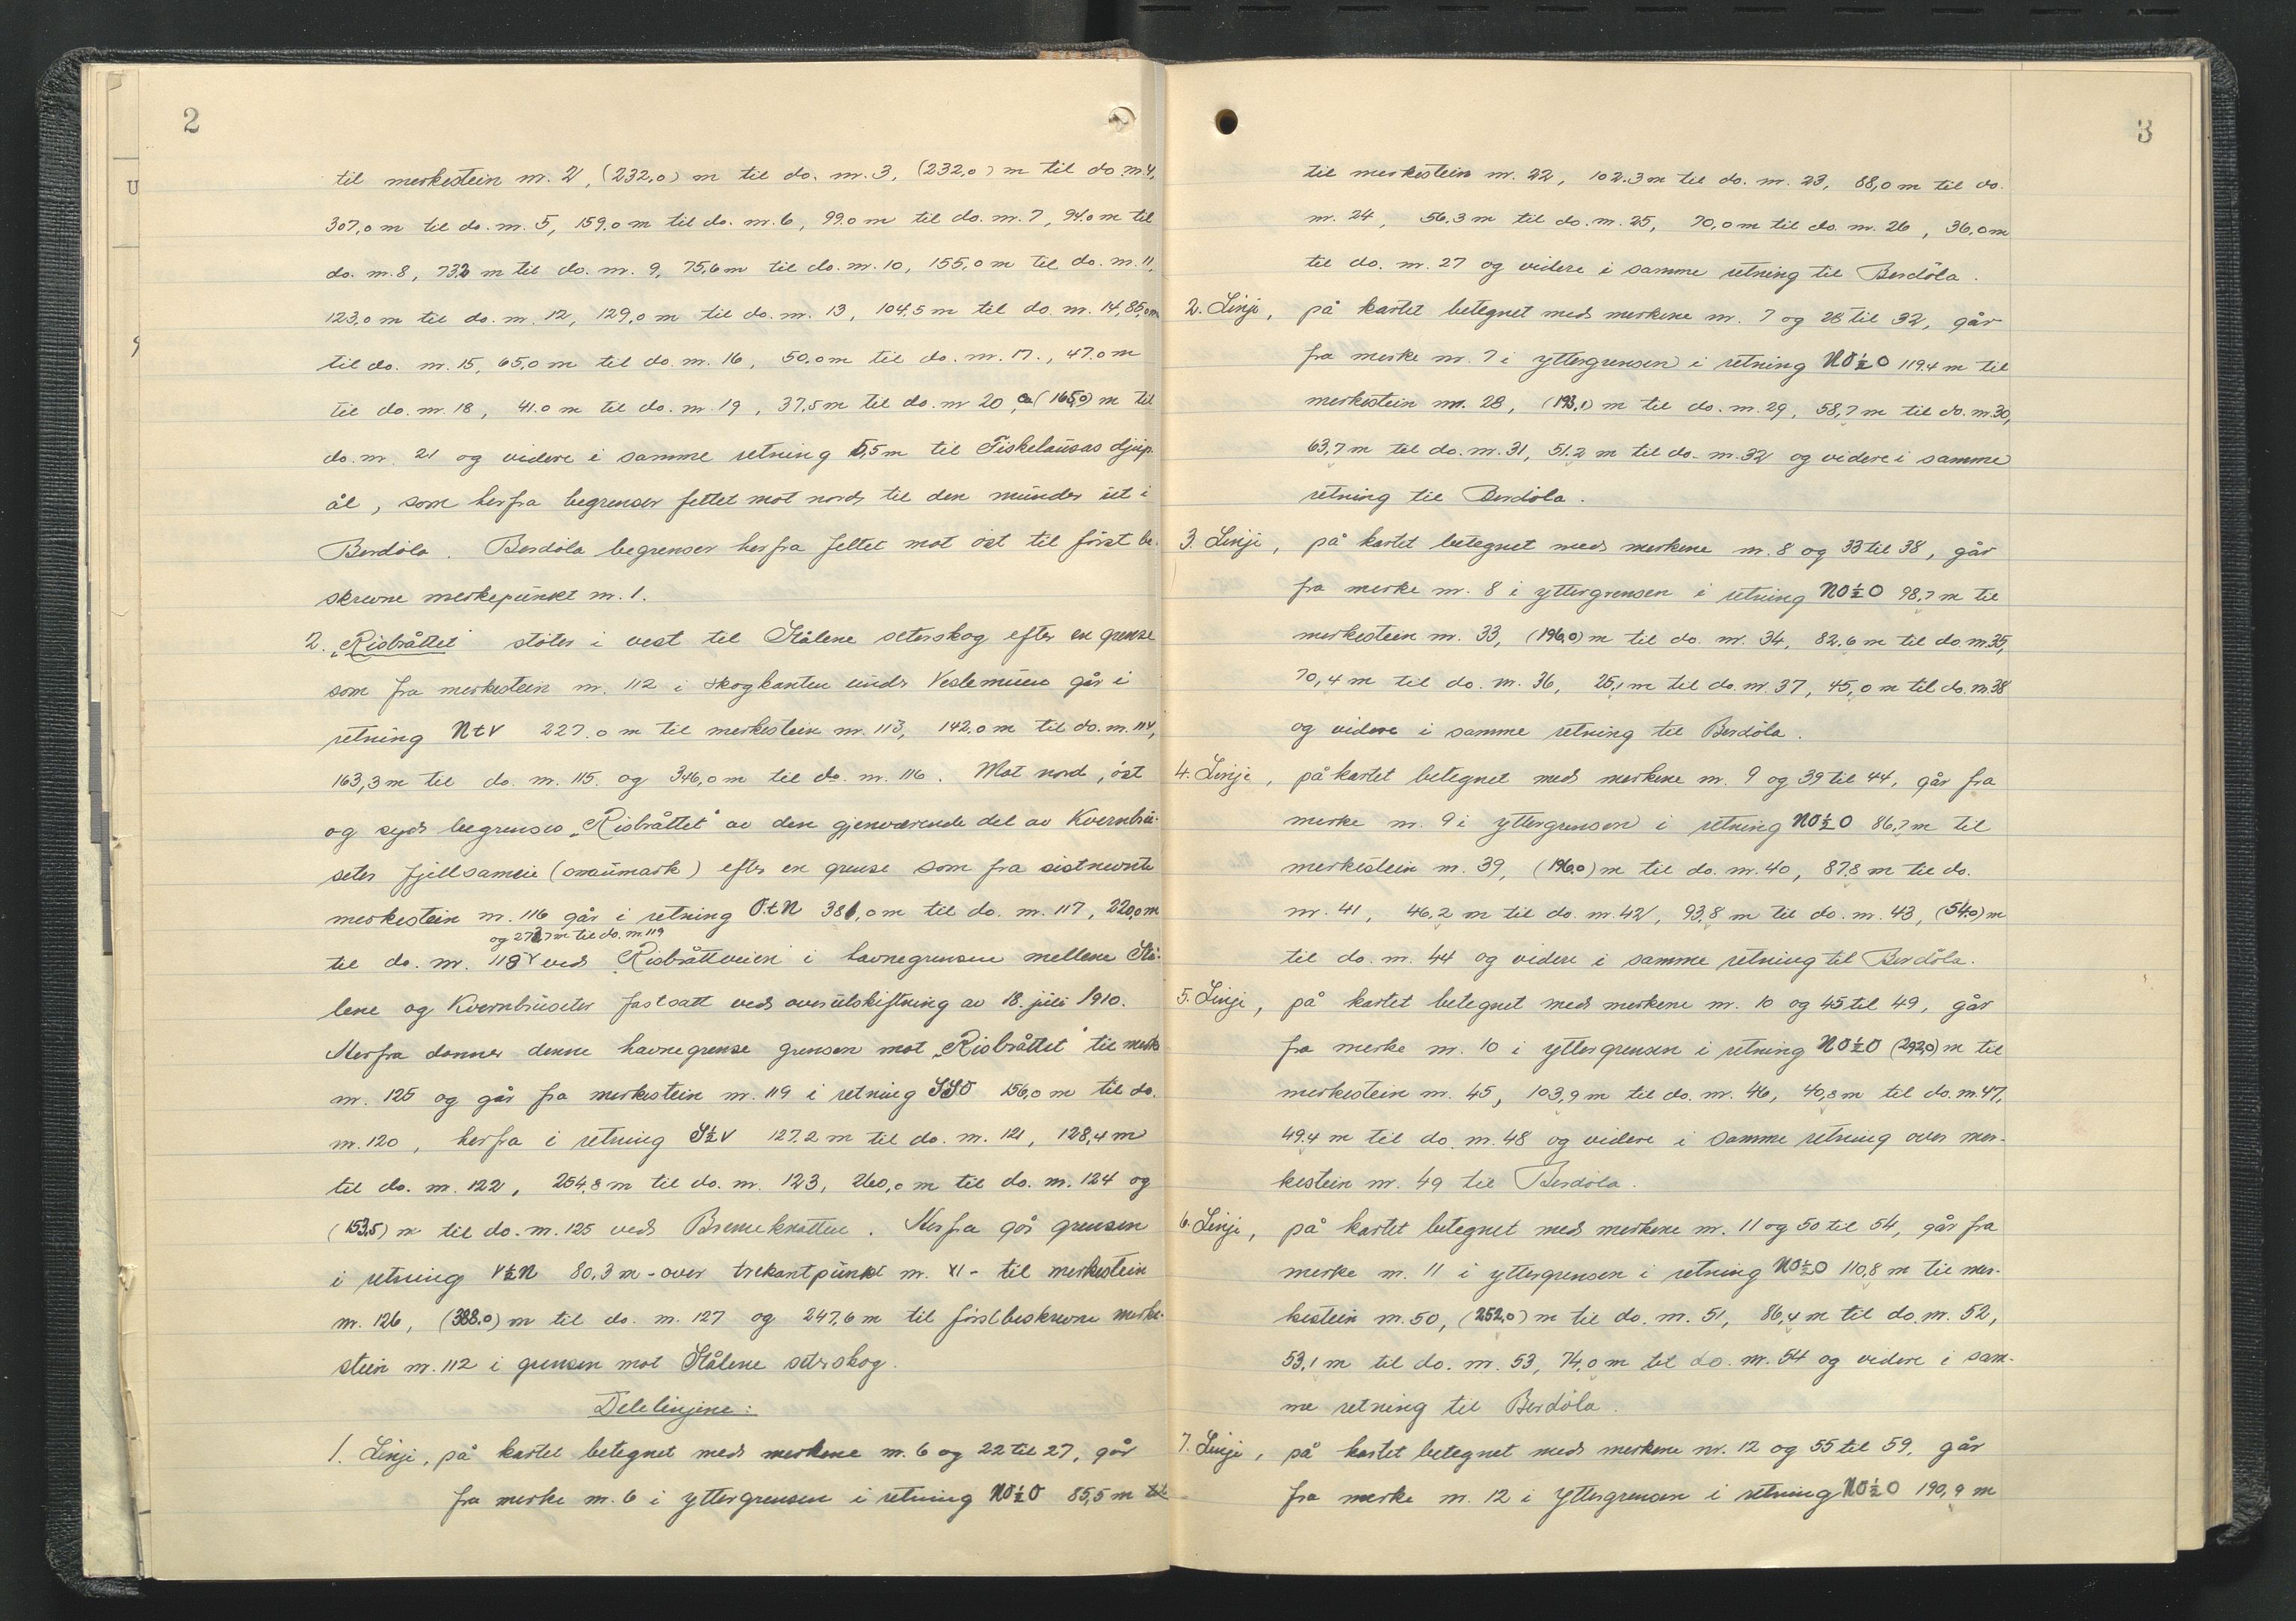 2
til merkestein nr. 2, (232,0) m til do. nr. 3, (232,0) m til do. nr. 4,
307,0 m til do. nr. 5, 159,0 m til do. nr. 6, 99,0 m til do. nr. 7, 94,0 m til
do. nr. 8, 73,2 m til do. nr. 9, 75,6 m til do. nr. 10, 155,0 m til do. nr. 11,
123,0 m til do. nr. 12, 129,0 m til do. nr. 13, 104,5 m til do. nr. 14, 85,0 m
til do. nr. 15, 65,0 m til do. nr. 16, 50,0 m til do. nr. 17., 47,0 m
til do. nr. 18, 41,0 m til do. nr. 19, 37,5 m til do. nr 20, ca (165,0) m til
do. nr. 21 og videre i samme retning 5,5 m til Fiskelausas djup-
ål, som herfra begrenser feltet mot nord til den munder ut i
Berdøla. Berdøla begrenser herfra feltet mot øst til først be-
skrevne merkepunkt nr. 1.
2. „Risbråttet" støter i vest til Stålene seterskog efter en grense
som fra merkestein nr. 112 i skogkanten under Veslemuen går i
retning NtV 227,0 m til merkestein nr. 113, 142,0 m til do. nr. 114,
163,3 m til do. nr. 115. og 346,0 m til do. nr. 116. Mot nord, øst
og syd begrenses „Risbråttet" av den gjenværende del av Kvernbru-
seter fjellsameie (snaumark) efter en grense som fra sistnevnte
merkestein nr. 116 går i retning ØtN 381,0 m til do. nr. 117, 220,0 m
og 272,7 m til do. nr. 119
til do. nr. 118 ved Risbråttveien i havnegrensen mellem Stå-
lene og Kvernbruseter fastsatt ved overutskiftning av 18. juli 1910.
Herfra danner denne havnegrense grensen mot „Risbråttet" til merke
nr. 125 og går fra merkestein nr. 119 i retning SSØ 156,0 m til do.
nr. 120, herfra i retning S½V 127,2 m til do. nr. 121, 128,4 m
til do. nr. 122, 254,8 m til do. nr. 123, 260,0 m til do. nr. 124 og
(153,5) m til do. nr. 125 ved Bremeknatten. Herfra går grensen
i retning V½N 80,3 m - over trekantpunkt nr. XI - til merkestein
nr. 126, (388,0) m til do. nr. 127 og 247,6 m til førstbeskrevne merke-
stein nr. 112 i grensen mot Stålene seterskog.
Delelinjene:
1. Linje, på kartet betegnet med merkene nr. 6 og 22 til 27, går
fra merke nr. 6 i yttergrensen i retning NØ½Ø 85,5 m til
3
til merkestein nr. 22, 102,3 m til do. nr. 23, 88,0 m til do.
nr. 24, 56,3 m til do. nr. 25, 70,0 m til do. nr. 26, 36,0 m
til do. nr. 27 og videre i samme retning til Berdøla.
2. Linje, på kartet betegnet med merkene nr. 7 og 28 til 32, går
fra merke nr. 7 i yttergrensen i retning NØ½Ø 119,4 m til
merkestein nr. 28, (193,1) m til do. nr. 29, 58,7 m til do. nr. 30,
63,7 m til do. nr. 31, 51,2 m til do. nr. 32 og videre i samme
retning til Berdøla.
3. Linje, på kartet betegnet med merkene nr. 8 og 33 til 38, går
fra merke nr. 8 i yttergrensen i retning NØ½Ø 98,7 m til
merkestein nr. 33, (196,0) m til do. nr. 34, 82,6 m til do. nr. 35,
70,4 m til do. nr. 36, 25,1 m til do. nr. 37, 45,0 m til do. nr. 38
og videre i samme retning til Berdøla.
4. Linje, på kartet betegnet med merkene nr. 9 og 39 til 44, går fra
merke nr. 9 i yttergrensen i retning NØ½Ø 86,7 m til
merkestein nr. 39, (196,0) m til do. nr. 40, 87,8 m til do.
nr. 41, 46,2 m til do. nr. 42, 93,8 m til do. nr. 43, (54,0) m
til do. nr. 44 og videre i samme retning til Berdøla.
5. Linje, på kartet betegnet med merkene nr. 10 og 45 til 49, går
fra merke nr. 10 i yttergrensen i retning NØ½Ø (292,0) m til
merkestein nr. 45, 103,9 m til do. nr. 46, 40,8 m til do. nr. 47,
49,4 m til do. nr. 48 og videre i samme retning over mer-
kestein nr. 49 til Berdøla.
6. Linje, på kartet betegnet med merkene nr. 11 og 50 til 54, går fra
merke nr. 11 i yttergrensen i retning NØ½Ø 110,8 m til mer-
kestein nr. 50, (252,0) m til do. nr. 51, 86,4 m til do. nr. 52,
53,1 m til do. nr. 53, 74,0 m til do. nr. 54 og videre i sam-
me retning til Berdøla.
7. Linje, på kartet betegnet med merkene nr. 12 og 55 til 59, går
fra merke nr. 12 i yttergrensen i retning NØ½Ø 190,9 m